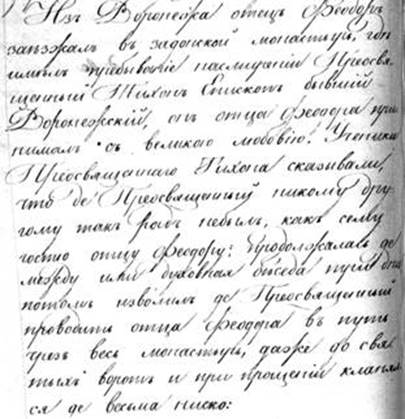 Изъ Воронежа отецъ Феодоръ
заѣзжалъ въ задонской монастырь, гдѣ
имѣлъ пребываніе на смиреніи Преосвя-
щенный Тихонъ Епископъ бывшій
Воронежскій, онъ отца Феодора при
нималъ съ великою любовію. Ученики
Преосвященнаго Тихона сказывали,
что де Преосвященный никому дру
гому такъ радъ небылъ, какъ сему
гостю отцу Феодору: Продолжалась де
между ими духовная бесѣда три дни
потомъ изволилъ де Преосвященный
проводить отца Феодора въ путь
чрезъ весь монастырь, даже до свя
тыхъ воротъ и при прощеніи кланял
ся де весьма ниско: